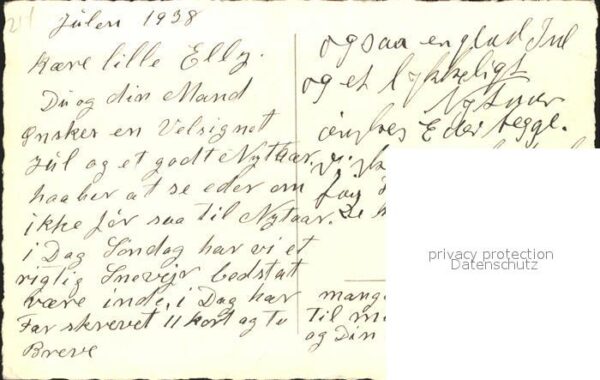 Julen 1938
Kære lille Elly.
Du og din Mand
Ønskes en Velsignet
Jul og et godt Nytaar.
haaber at se eder om
ikke før saa til Nytaar.
i Dag Søndag har vi et
rigtig Snevejr bedst at
være inde, i Dag har
Far skrevet 11 kort og to
Breve
ogsaa en glad Jul
og et lykkeligt
Nytaar
ønskes Eder begge.
mang
til m
og Din
privacy protection
Datenschutz